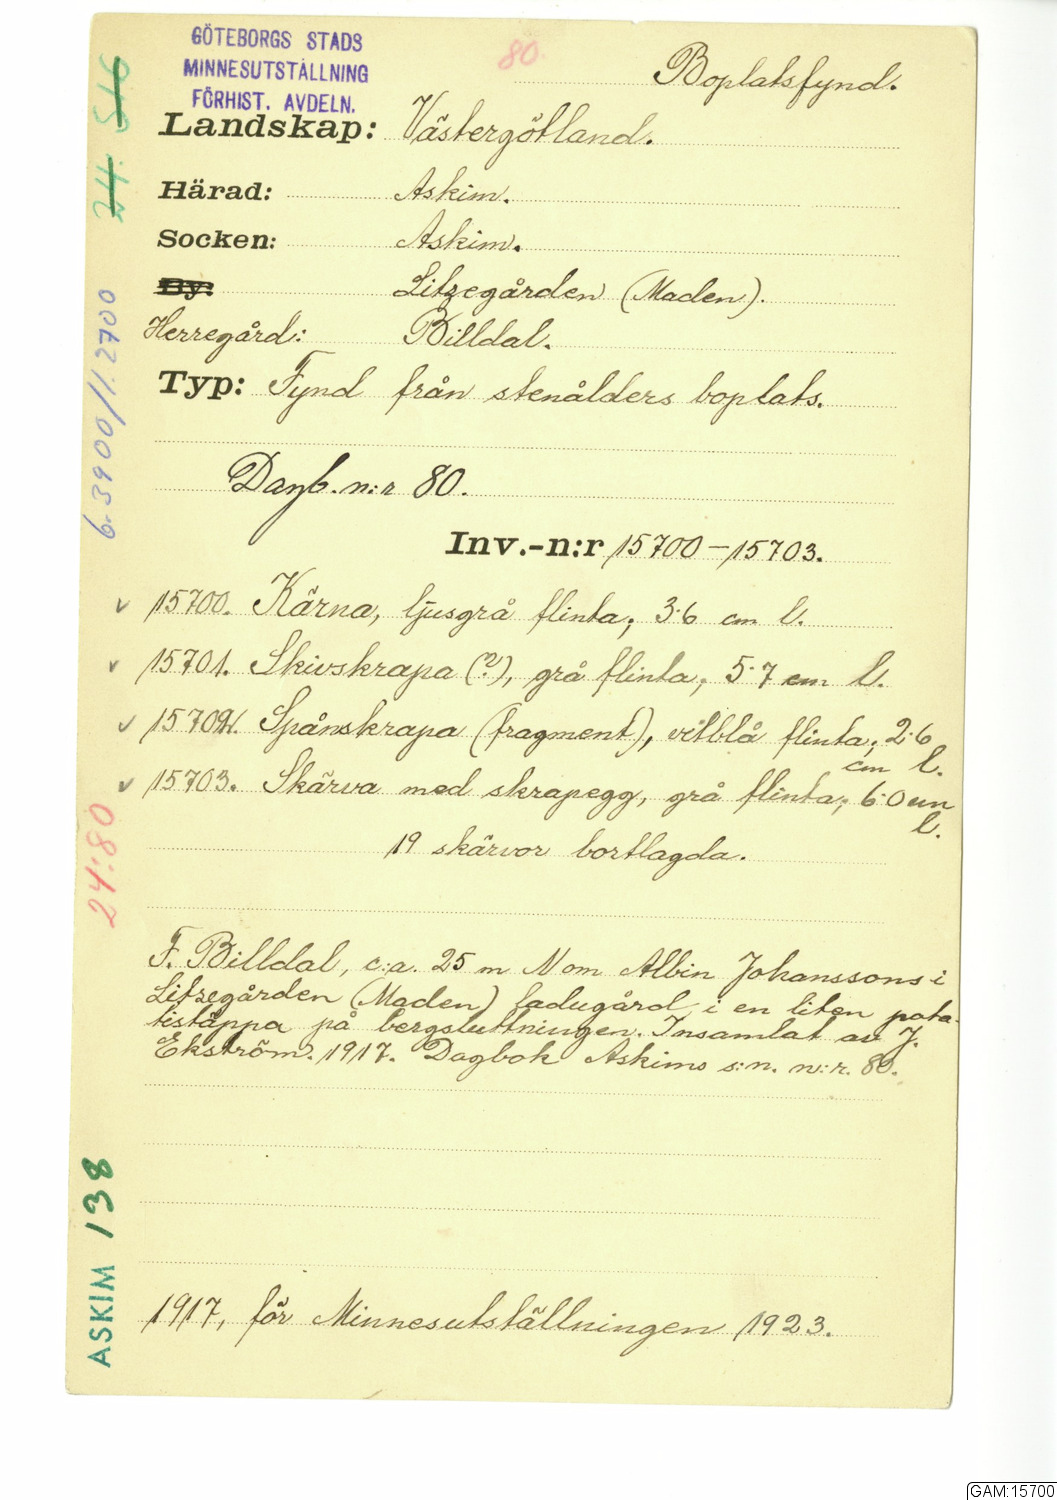 GÖTEBORGS STADS
MINNESUTSTÄLLNING
FÖRHIST. AVDELN.
80.
Boplatsfynd.
Landskap: Västergötland.
Härad: Askim.
Socken: Askim.
By: Litzegården (Maden).
Herregård: Billdal.
Typ: Fynd från stenålders boplats.
Dagb. n:r 80.
Inv.-n:r 15700-15703.
15700. Kärna, ljusgrå flinta; 3·6 cm l.
15701. Skivskrapa (?), grå flinta; 5·7 cm l.
15702. Spånskrapa (fragment), vitblå flinta; 2·6
cm l.
15703. Skärva med skrapegg, grå flinta; 6·0 cm
l.
19 skärvor bortlagda.
F. Billdal, c:a. 25 m N om Albin Johanssons i
Litzegården (Maden) ladugård, i en liten pota-
tistäppa på bergsluttningen. Insamlat av J.
Ekström. 1917. Dagbok Askims s:n. n:r. 80.
1917, för Minnesutställningen 1923.
24. 516
6.3900/1.2700
24:80
ASKIM 138
GAM:15700